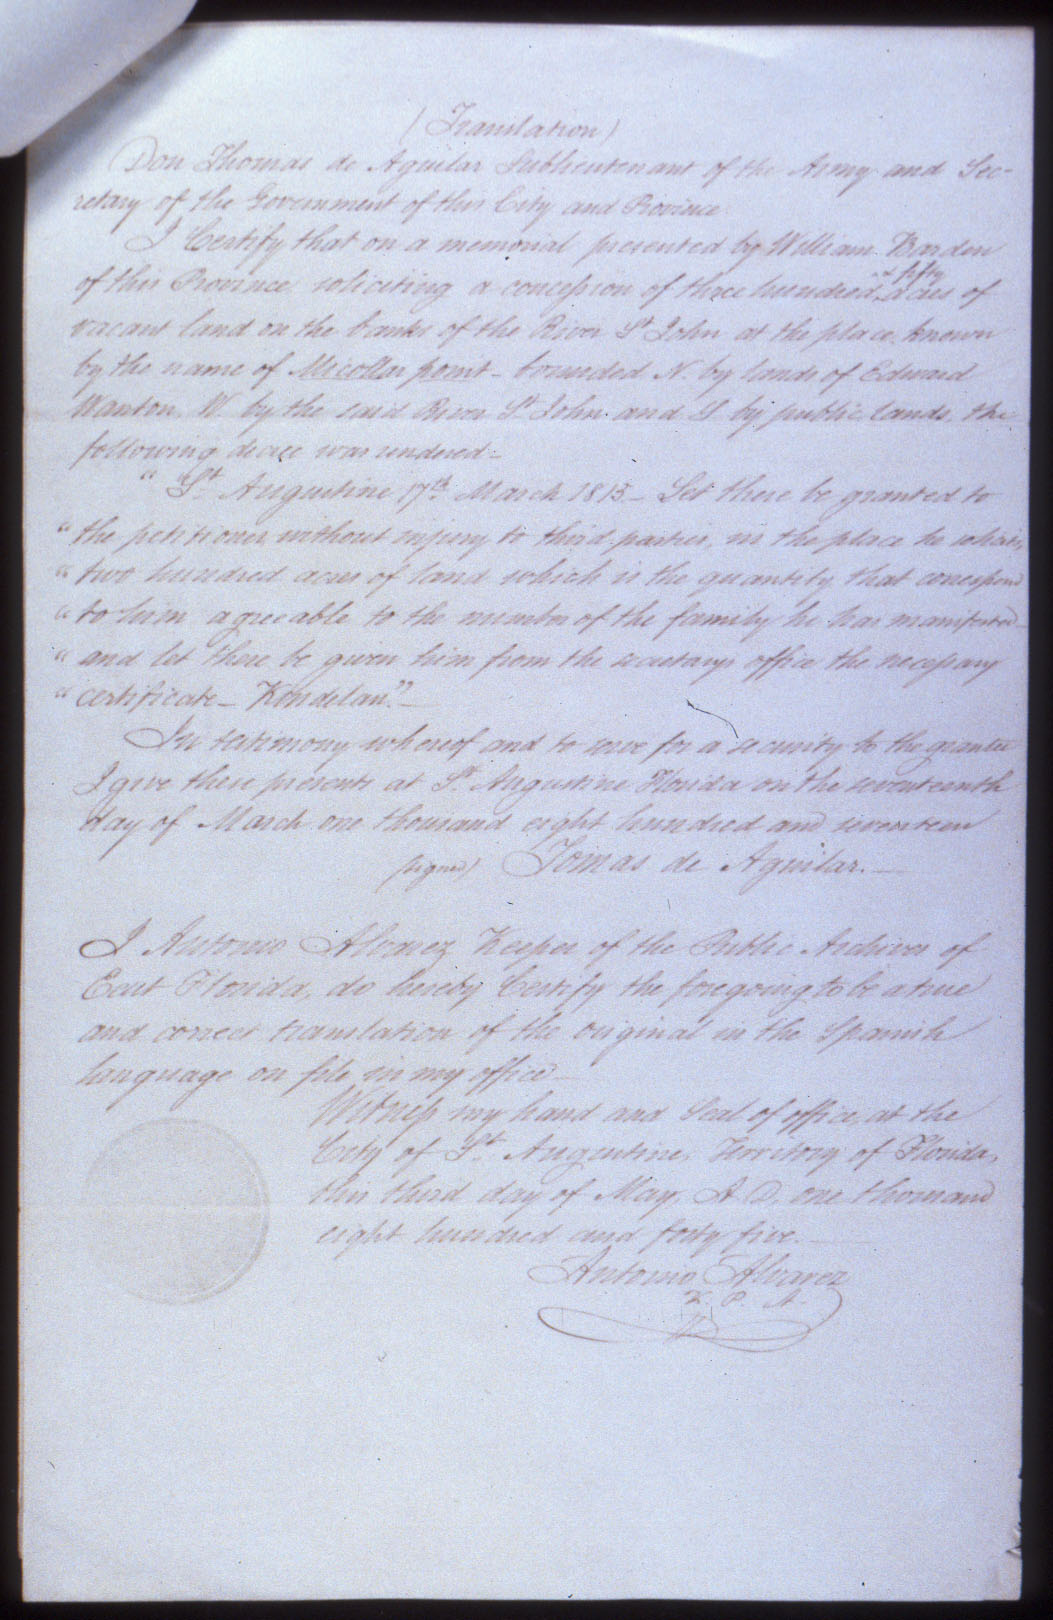 (Translation)
Don Thomas de Aguilar Sublieutenant of the Army and Sec-
retary of the Government of this City and Province
I Certify that on a memorial presented by William Barden
of this Province soliciting a concession of three hundred & fifty acres of
vacant land on the banks of the River St John at the place known
by the name of point - bounded N. by lands of Edward
Wanton, W by the said River St John and S by public lands, the
following decree was rendered:
"St Augustine 17th March 1815 - Let there be granted to
"the petitioner without injury to third parties, in the place he solicits,
"two hundred acres of land which is the quantity that correspond
"to him agreeable to the number of the family he has manifested
"and let there be given him from the secretarys office the necessary
"certificate - Kindelan."
In testimony whereof and to serve for a security to the grantee
I give these presents at St. Augustine Florida on the seventeenth
day of March one thousand eight hundred and seventeen
(signed) Tomas de Aguilar.
I Antonio Alvarez Keeper of the Public Archives of
East Florida, do hereby Certify the foregoing to be a true
and correct translation of the original in the Spanish
language on file in my office
Witness my hand and Seal of office, at the
City of St. Augustine, Territory of Florida,
this third day of May, A.D. one thousand
eight hundred and forty five.
Antonio Alvarez
K. P. A.